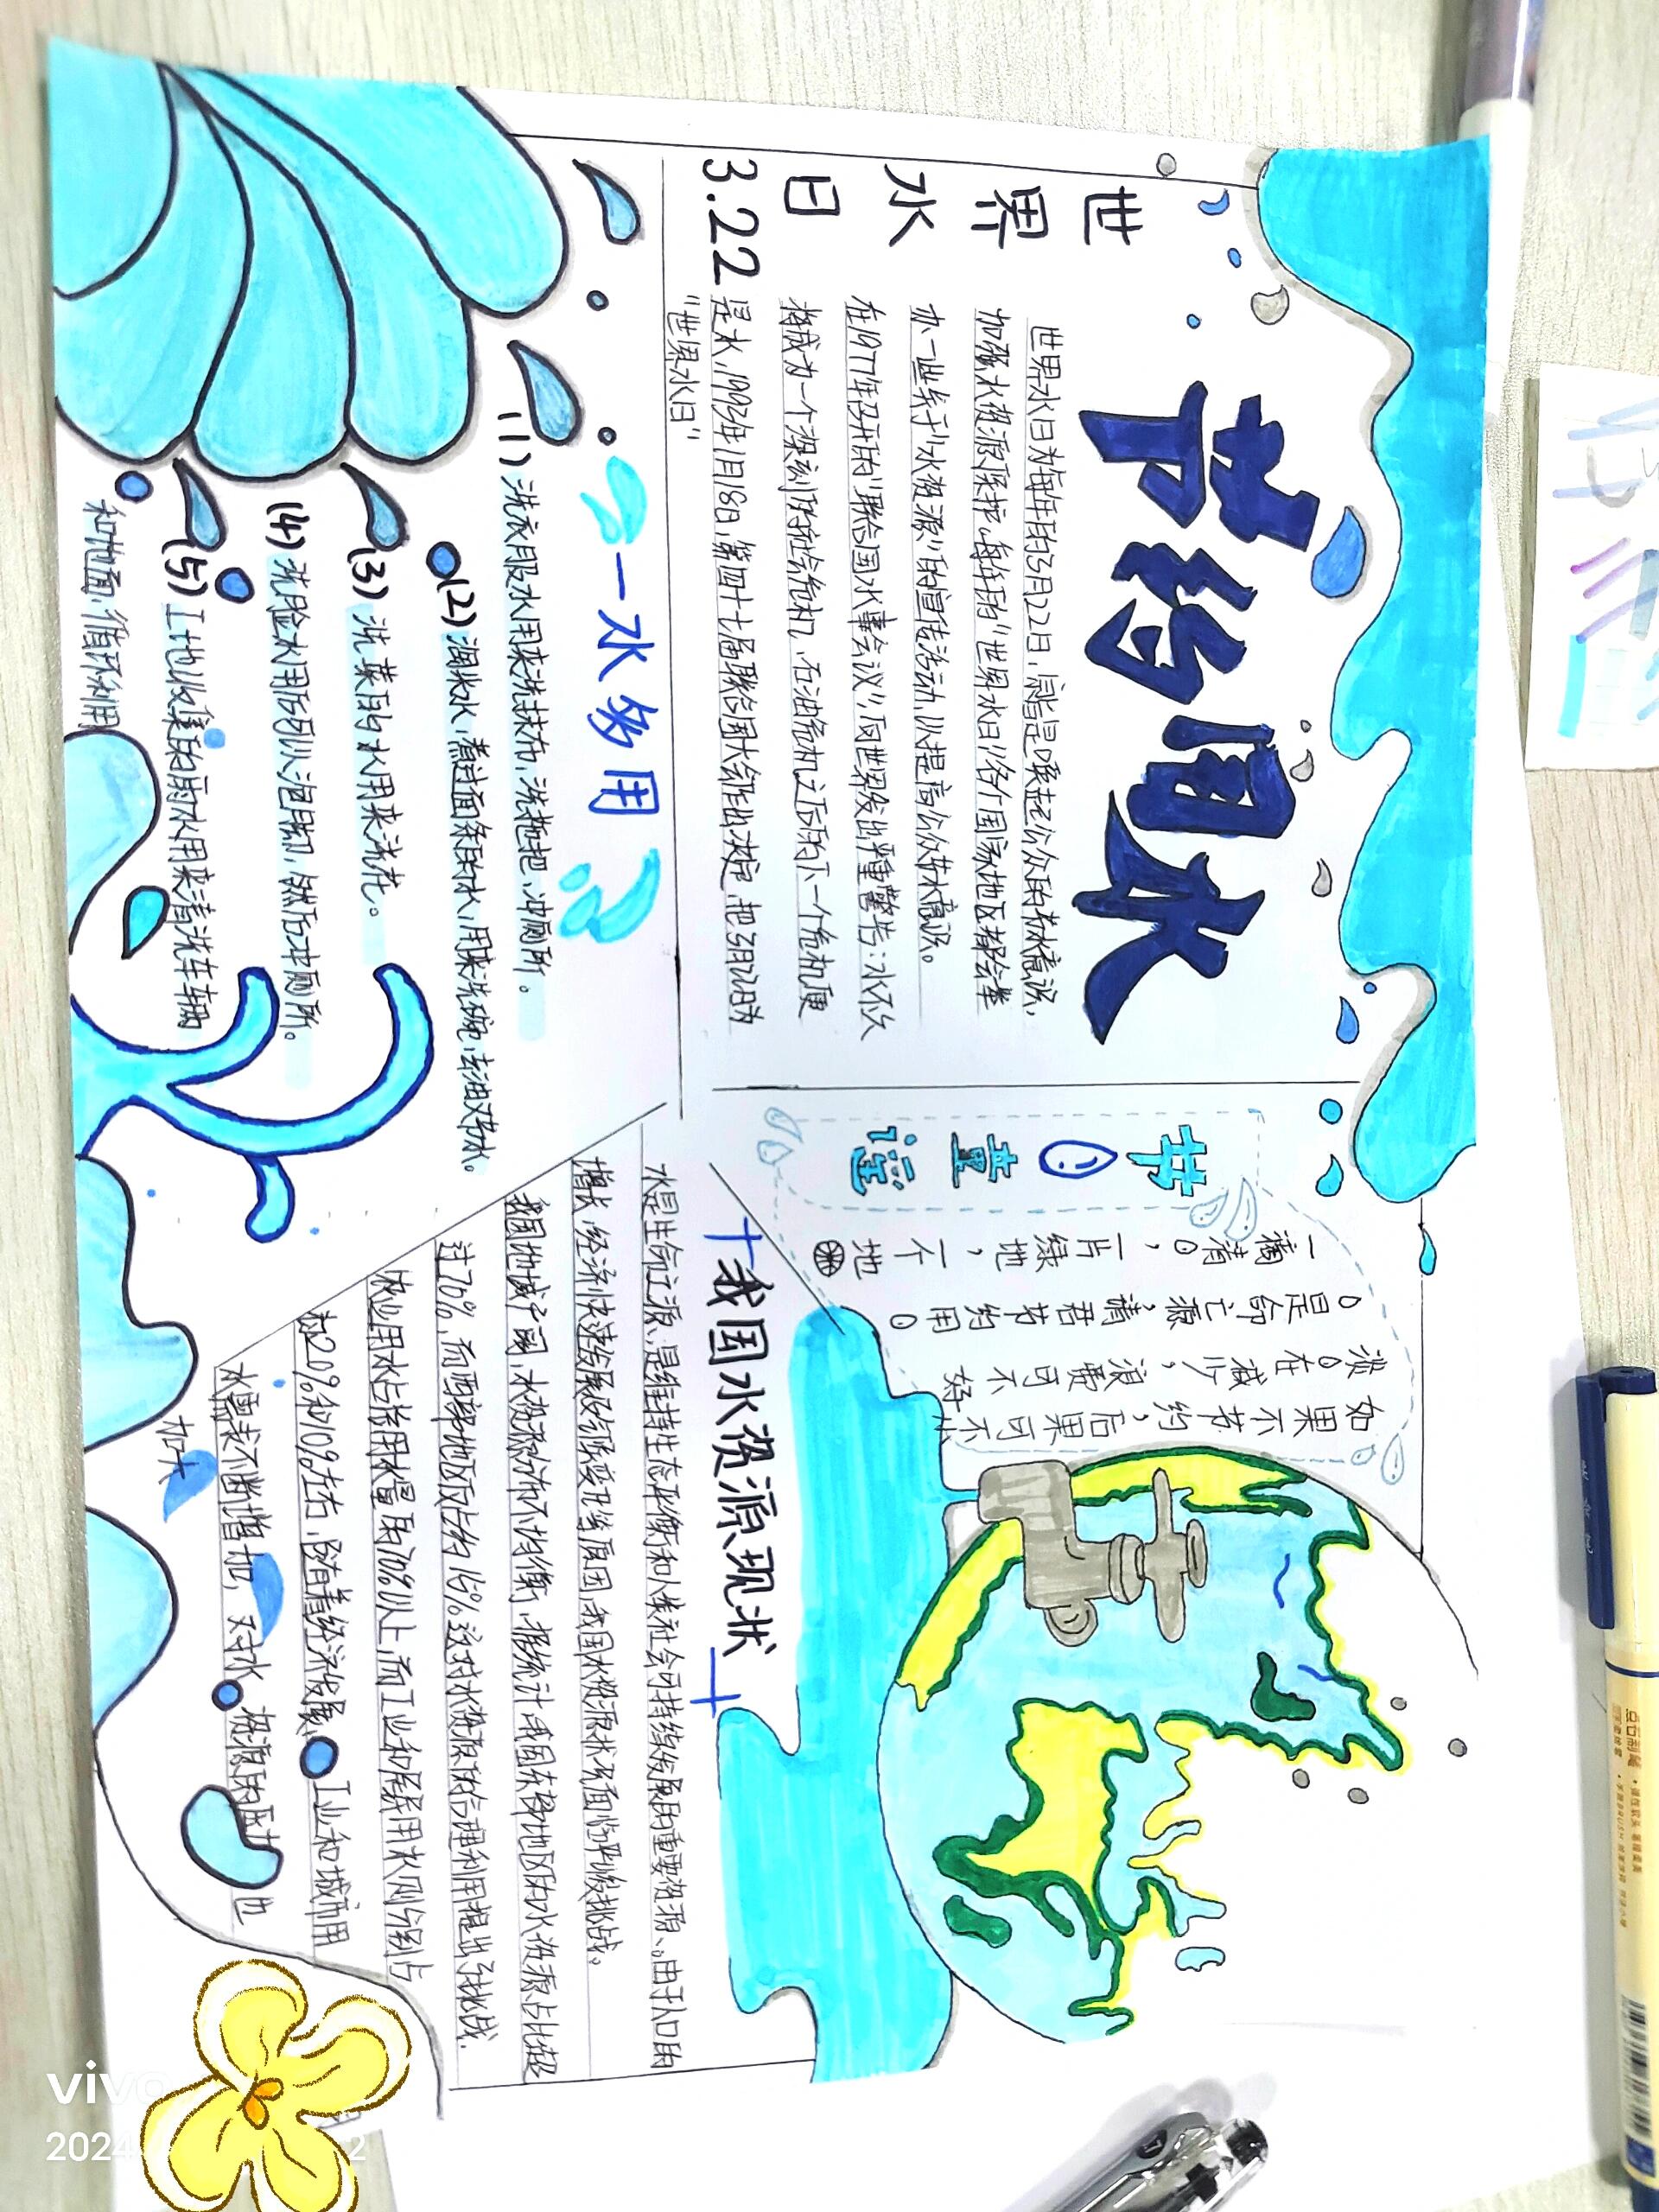 节约用水
世
界
水
日
3.22
世界水日为每年的3月22日,宗旨是唤起公众的节水意识,
加强水资源保护,每年的“世界水日”各个国家地区都会举
办一些关于“水资源”的宣传活动,以提高公众节水意识。
在1977年召开的“联合国水事会议”,向世界发出严重警告:水不久
将成为一个深刻的社会危机,石油危机之后的下一个危机便
是水,1993年1月18日,第四十七届联合国大会作出决定,把3月22日为
“世界水日”
一水多用
(1)洗衣服水用来洗抹布,洗拖把,冲厕所。
(2)淘米水,煮过面条的水,用来洗碗,去油又节水。
(3)洗菜的水用来浇花。
(4)洗脸水用后可以泡脚,然后冲厕所。
(5)工地收集的雨水用来清洗车辆
和地面,循环利用
节
童
谣
一滴清,一片绿地,一个地
是命之源,请君节约用
资在减少,浪费可不好
如果不节约,后果可不
我国水资源现状
水是生命之源,是维持生态平衡和人类社会可持续发展的重要资源、。由于人口的
增长,经济快速发展及气候变化等原因,我国水资源状况面临严峻挑战。
我国地域辽阔,水资源分布不均衡,据统计,我国东部地区的水资源占比超
过76%,而西部地区仅占约16%。这对水资源的合理利用提出了挑战.
农业用水占总用水量的70%以上,而工业和居民用水则分别占
20%和10%左右,随着经济发展,工业和城市用
水需求不断增加,对水资源的压力也
加大
vivo
2024